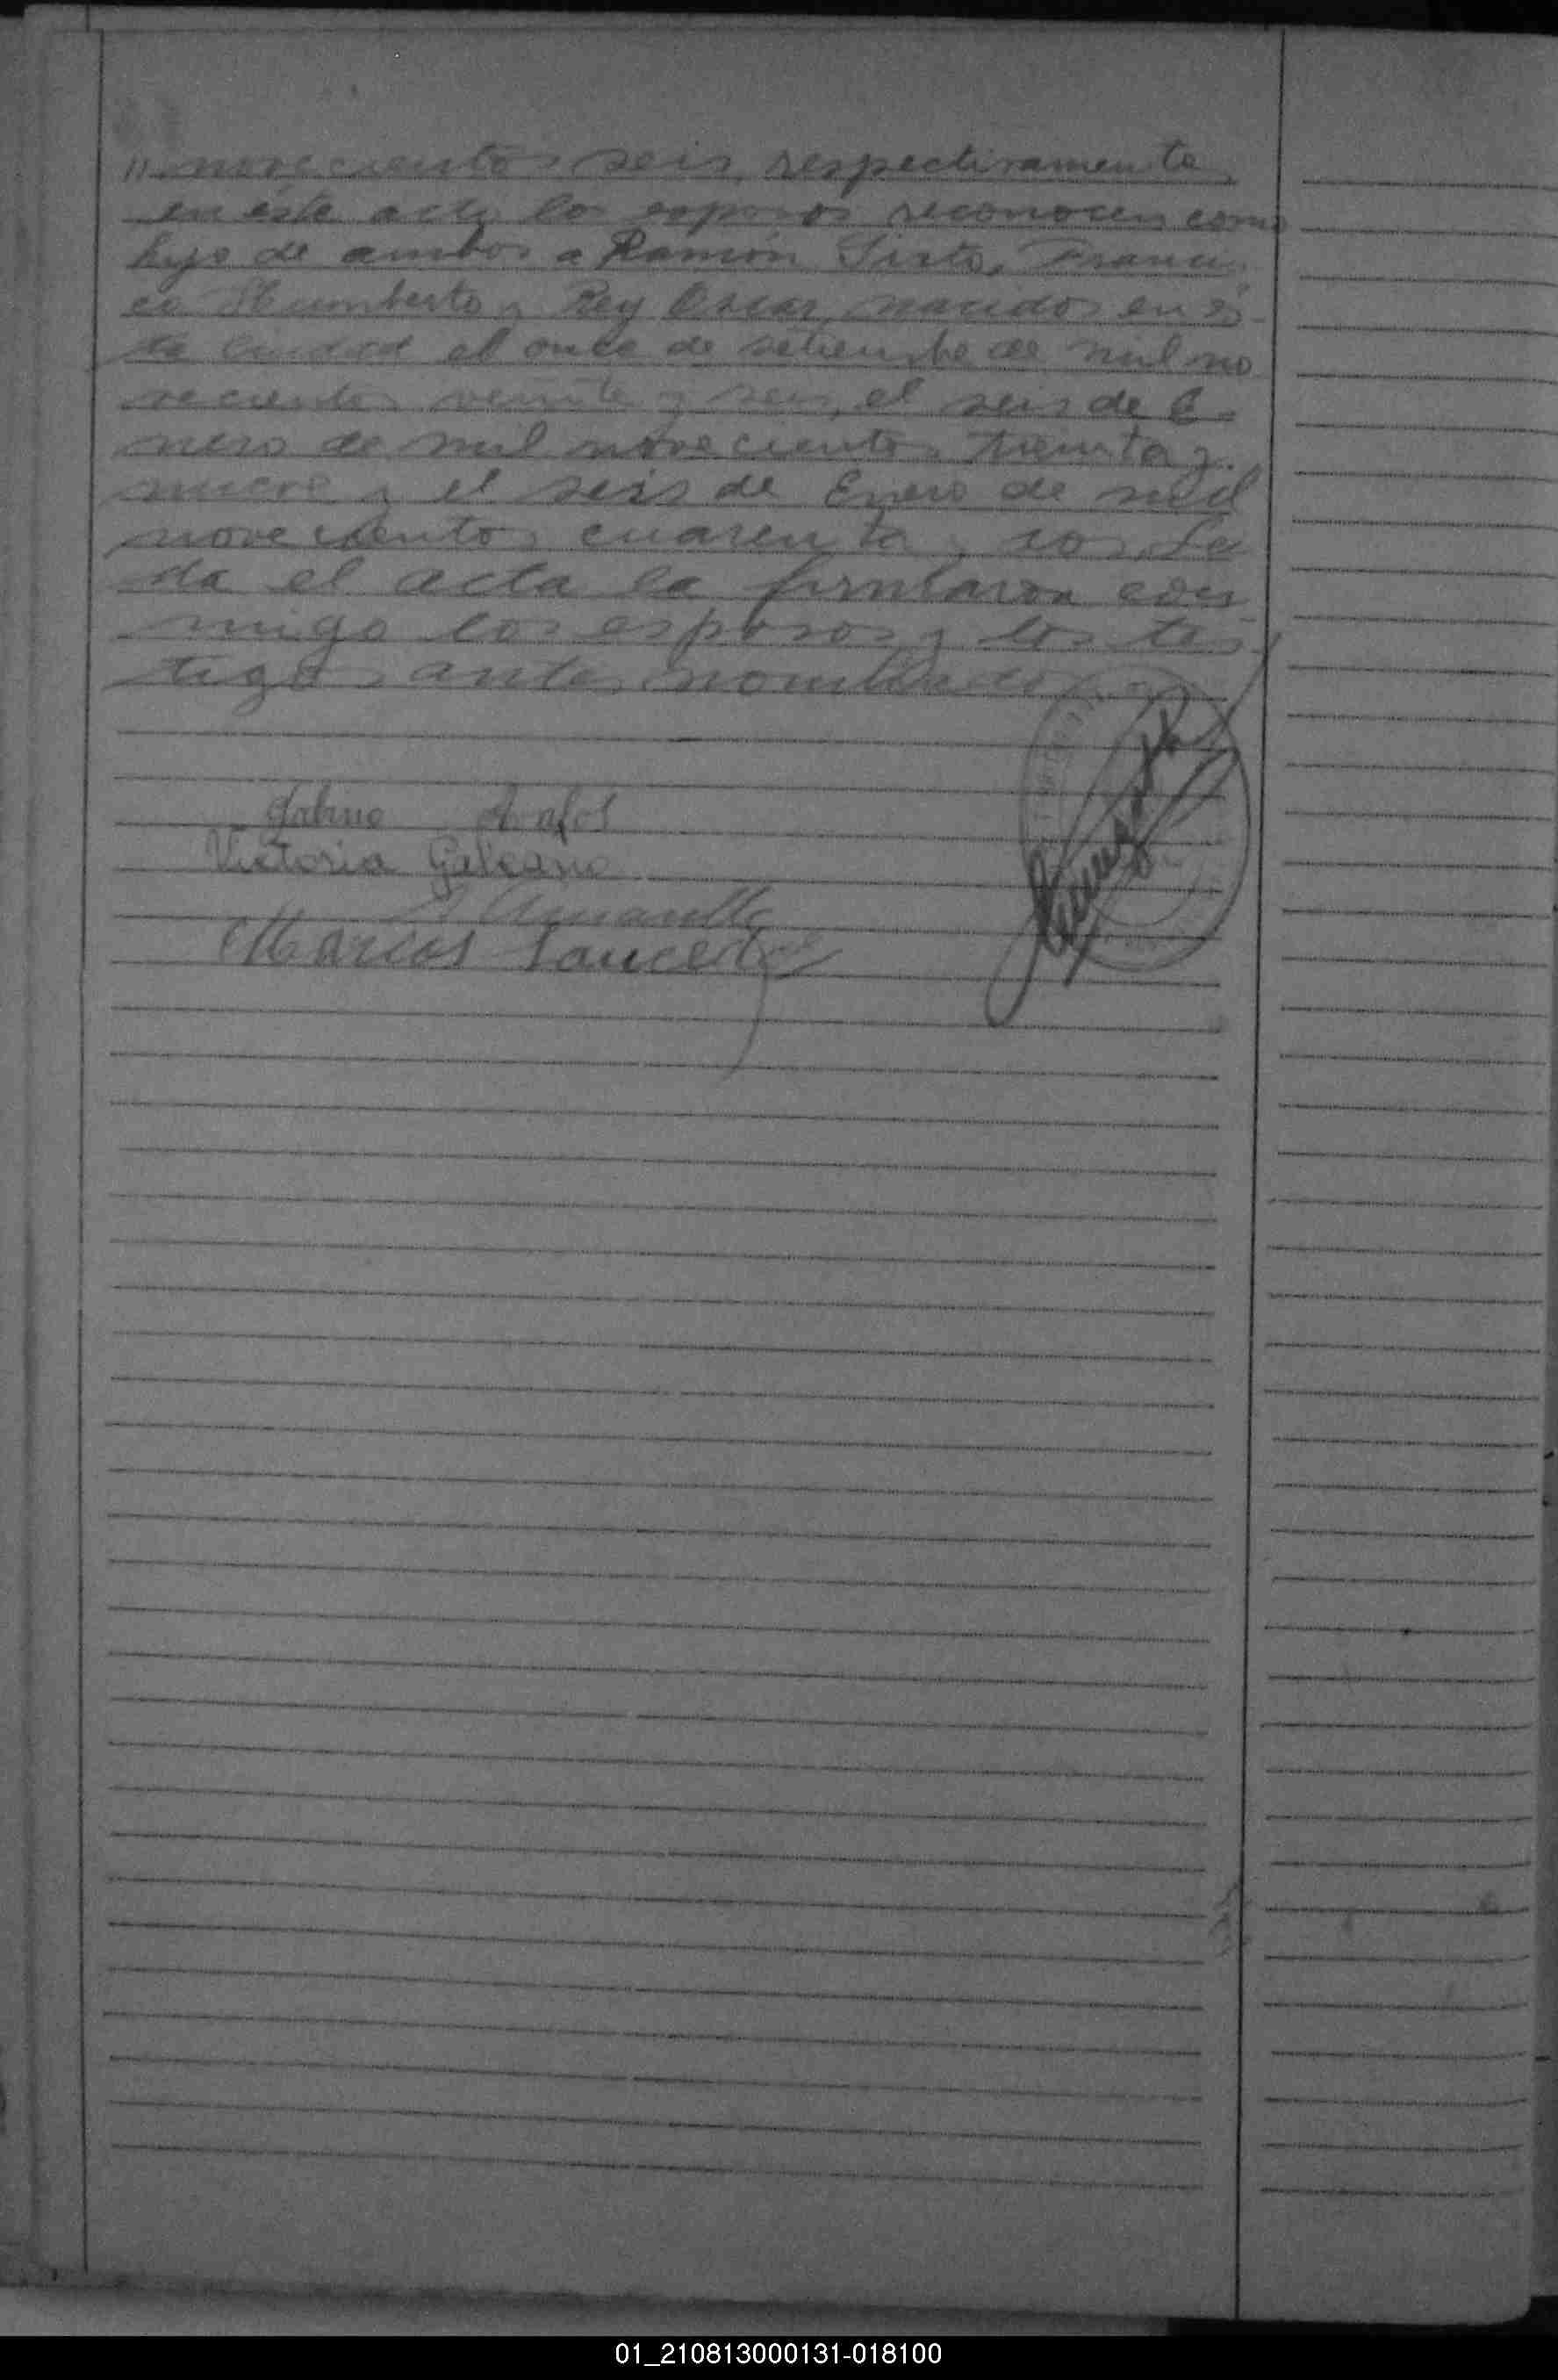 " novecientos seis, respectivamente,
en éste acto los esposos reconocen como
hijo de ambos a Ramón Sixto, Francis
co Humberto y Rey Oscar, nacidos en és-
ta ciudad el once de setiembre de mil no
vecientos veinte y seis, el seis de E-
nero de mil novecientos treinta y
nueve y el seis de Enero de mil
novecientos cuarenta y Le
da el acta la firmaron con
migo los esposos y los tes
tigos antes nombrados
Victoria Galeano
Marcos Saucedo
01_210813000131-018100